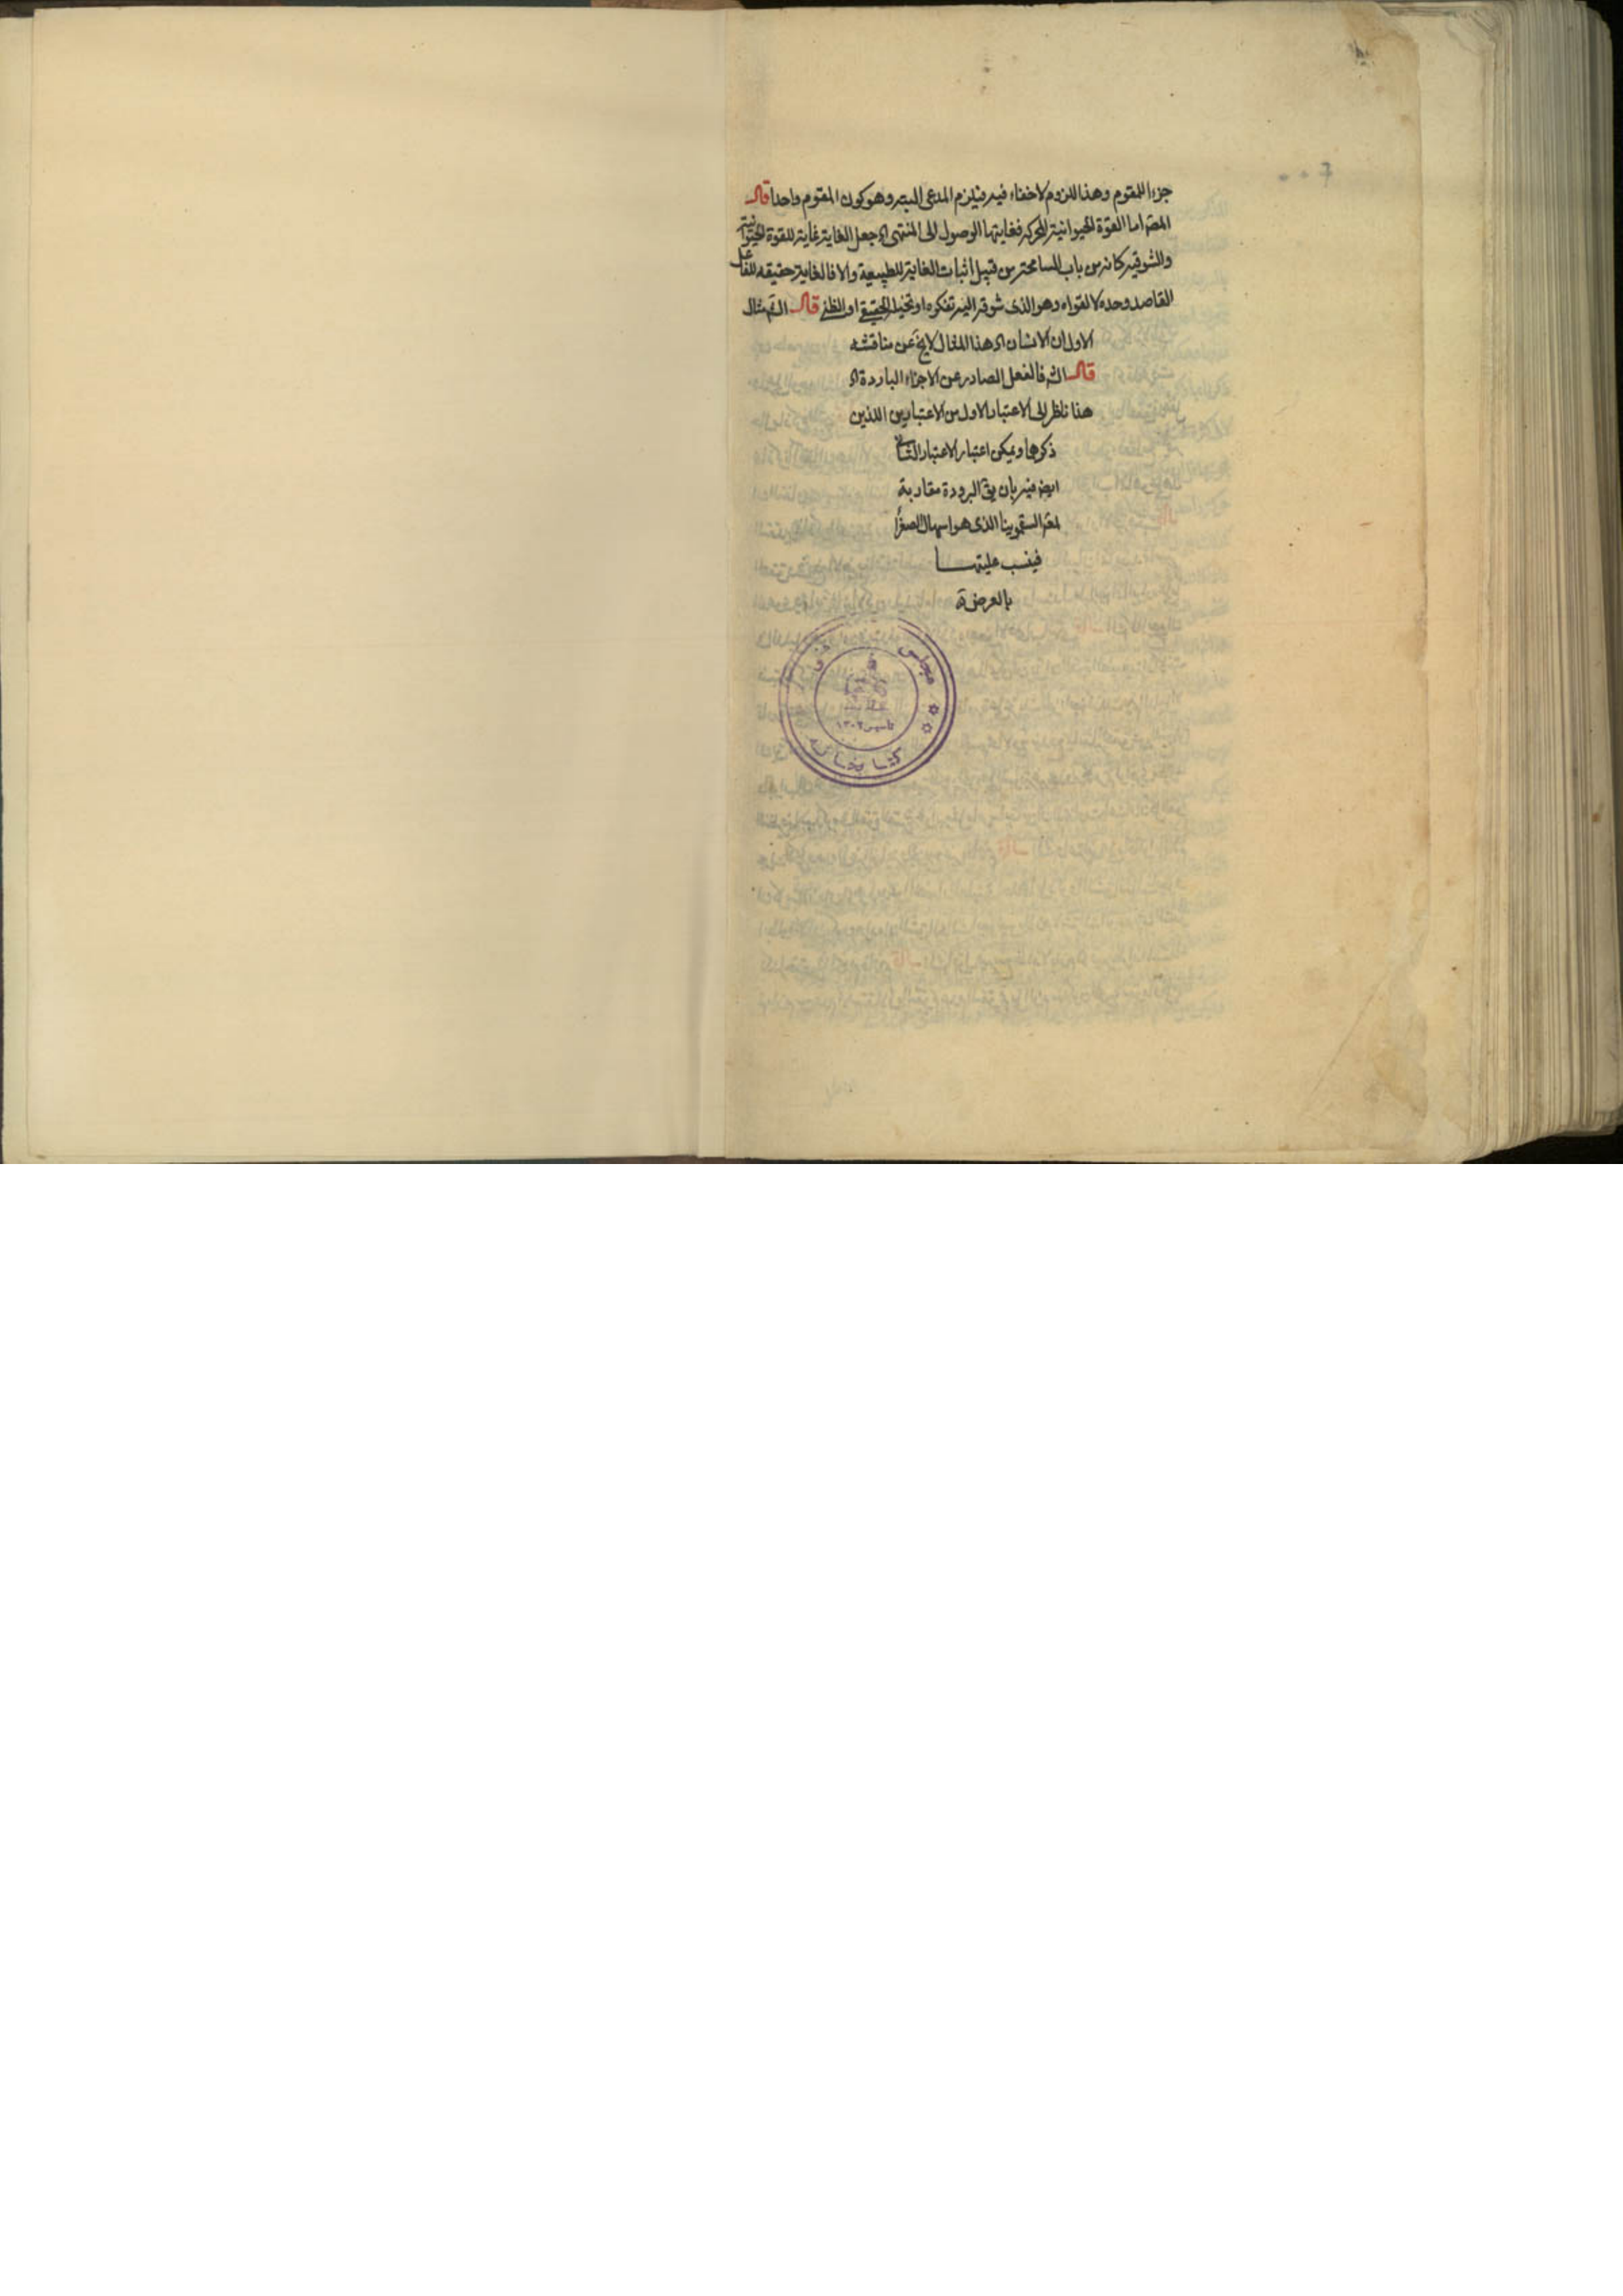 جزءا للمقوم وهذا اللزوم لا خفاء فيه فيلزم المدعى البتة وهو كون المقوم واحدا قال
المص اما القوة الحيوانية المحركة فغايتها الوصول الى المنتهى اه جعل الغاية غاية للقوة الحيوانية
والشوقية كانه من باب المسامحة من قبيل اثبات الغاية للطبيعة والا فالغاية حقيقه للفاعل
القاصد وحده لا لقواه وهو الذى شوقه اليه تفكره او تخيله الحقيقى او الظنى قال الش مثال
الاول ان الانسان اه هذا المثال لا يخ عن مناقشه
قال الش فالفعل الصادر عن الاجزاء الباردة اه
هذا ناظر الى الاعتبار الاول من الاعتبارين اللذين
ذكرهما ويمكن اعتبار الاعتبار الثانى
ايض فيه بان يق البرودة مقارنة
لمقـ السقمونيا الذى هو اسهال الصفرا
فينسب عليتها
بالعرض تم
مجلس
تاسيس ١٣٠٢
كتابخانه